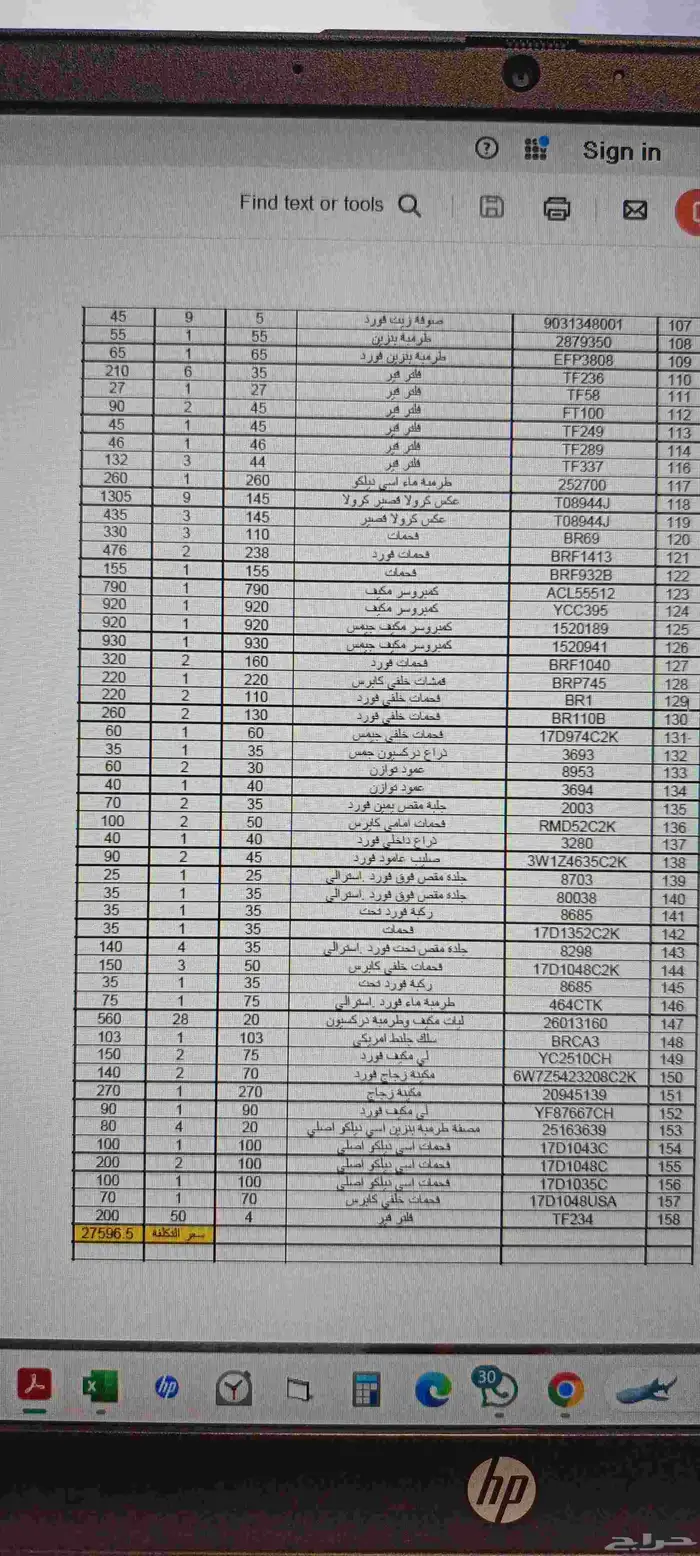 Sign in
Find text or tools
107 9031348001 صوفة زيت فورد 5 9 45
108 2879350 طرمبة بنزين 55 1 55
109 EFP3808 طرمبة بنزين فورد 65 1 65
110 TF236 فلتر قير 35 6 210
111 TF58 فلتر قير 27 1 27
112 FT100 فلتر قير 45 2 90
113 TF249 فلتر قير 45 1 45
114 TF289 فلتر قير 46 1 46
116 TF337 فلتر قير 44 3 132
117 252700 طرمبة ماء اسي ديلكو 260 1 260
118 T08944J عكس كرولا قصير كرولا 145 9 1305
119 T08944J عكس كرولا قصير 145 3 435
120 BR69 فحمات 110 3 330
121 BRF1413 فحمات فورد 238 2 476
122 BRF932B فحمات 155 1 155
123 ACL55512 كمبروسر مكيف 790 1 790
124 YCC395 كمبروسر مكيف 920 1 920
125 1520189 كمبروسر مكيف جيمس 920 1 920
126 1520941 كمبروسر مكيف جيمس 930 1 930
127 BRF1040 فحمات فورد 160 2 320
128 BRP745 قمشات خلفي كابرس 220 1 220
129 BR1 فحمات خلفي فورد 110 2 220
130 BR110B فحمات خلفي فورد 130 2 260
131 17D974C2K فحمات خلفي جيمس 60 1 60
132 3693 ذراع دركسيون جمس 35 1 35
133 8953 عمود توازن 30 2 60
134 3694 عمود توازن 40 1 40
135 2003 جلبة مقص يمين فورد 35 2 70
136 RMD52C2K فحمات امامي كابرس 50 2 100
137 3280 ذراع داخلي فورد 40 1 40
138 3W1Z4635C2K صليب عامود فورد 45 2 90
139 8703 جلدة مقص فوق فورد .استرالي 25 1 25
140 80038 جلدة مقص فوق فورد .استرالي 35 1 35
141 8685 ركبة فورد تحت 35 1 35
142 17D1352C2K فحمات 35 1 35
143 8298 جلدة مقص تحت فورد .استرالي 35 4 140
144 17D1048C2K فحمات خلفي كابرس 50 3 150
145 8685 ركبة فورد تحت 35 1 35
146 464CTK طرمبة ماء فورد .استرالي 75 1 75
147 26013160 ليات مكيف وطرمبة دركسيون 20 28 560
148 BRCA3 سلك جلنط امريكي 103 1 103
149 YC2510CH لي مكيف فورد 75 2 150
150 6W7Z5423208C2K مكينة زجاج فورد 70 2 140
151 20945139 مكينة زجاج 270 1 270
152 YF87667CH لي مكيف فورد 90 1 90
153 25163639 مصفة طرمبة بنزين اسي ديلكو اصلي 20 4 80
154 17D1043C فحمات اسي ديلكو اصلي 100 1 100
155 17D1048C فحمات اسي ديلكو اصلي 100 2 200
156 17D1035C فحمات اسي ديلكو اصلي 100 1 100
157 17D1048USA فحمات خلفي كابرس 70 1 70
158 TF234 فلتر قير 4 50 200
سعر التكلفة 27596.5
30
hp
hp
حراج